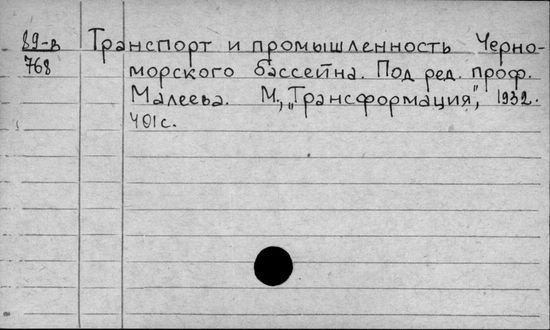 89-в Транспорт и промышленность Черно-
768 морского бассейна. Под ред. проф.
Малеева. М., "Трансформация", 1932.
401с.